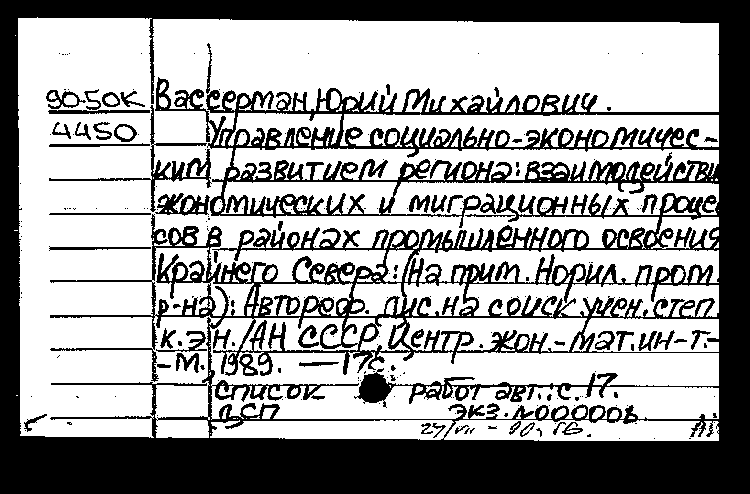 90-50К Вассерман, Юрий Михайлович.
4450 Управление социально-экономичес-
ким развитием региона: взаимодействи
экономических и миграционных процес
сов в районах промышленного освоения
Крайнего Севера: (На прим. Норил. пром.
р-на): Автореф. дис. на соиск. учен. степ.
к.э.н. / АН СССР, Центр. экон.-мат. ин-т.-
-М., 1989. — 17с.
Список работ авт.: с. 17.
ЦСП экз. N000006
24/VII - 90,